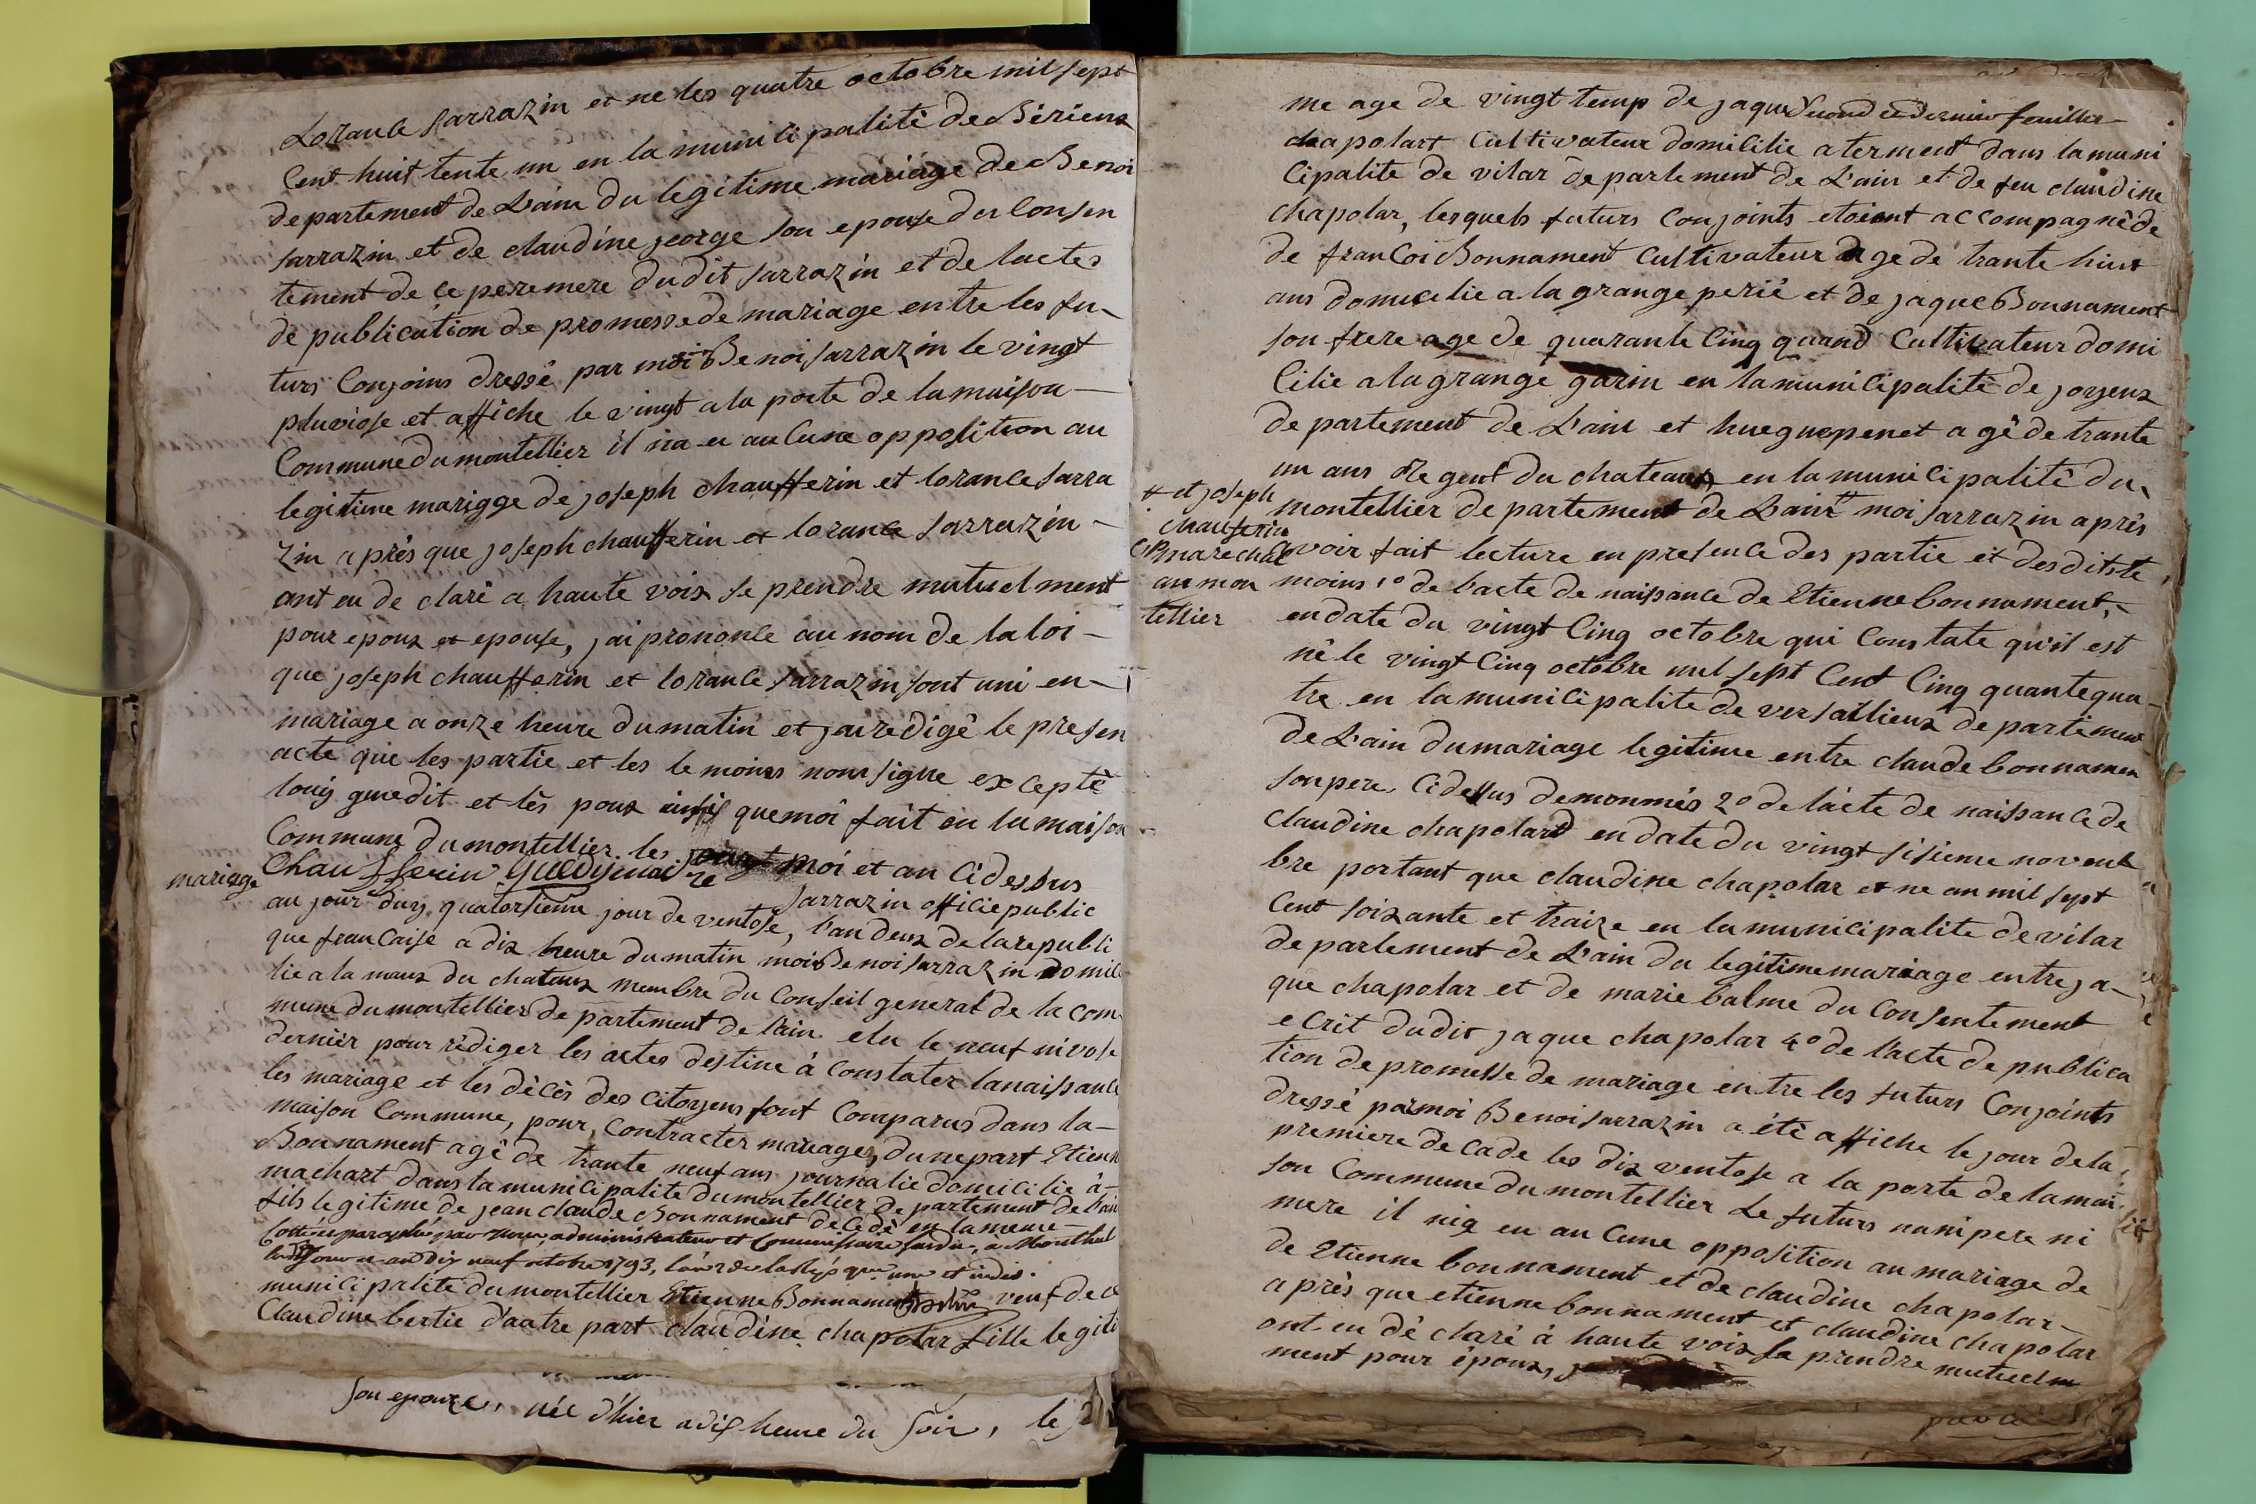 Lorance sarrazin et ne les quatre octobre mil sept
Cent huit tente un en la municipalité de Birieux
departement de L'ain du legitime mariage de Benoi
sarrazin et de claudine jeorge son epouse du Consen
tement de ce pere mere dudit sarrazin et de lactes
de publication de promesse de mariage entre les fu-
turs Conjoins dressé par moi Benoi sarrazin le vingt
pluviose et affiche le vingt a la porte de la maison
Commune du montellier il n'a eu aucune opposition au
legitime mariage de joseph chaufferin et lorance sarra
zin après que joseph chaufferin et lorance sarrazin
ont eu de claré a haute voix se prendre mutuelment
pour epoux et epouse, jai prononcé au nom de la loi
que joseph chaufferin et lorance sarrazin sont uni en
mariage a onze heure du matin et jai redigé le presen
acte que les partie et les temoins nom signe excepté
louis guedit et lès poux quemoi fait en la maison
Commune du montellier les moi et an Cidessus
Chaufferin
Sarrazin officie public
mariage
au jourduij quatorsieme jour de ventose, l'an deux de la republi
que francaise a dix heure du matin moi Benoi sarrazin domici
lie a la maux du chateaux membre du Conseil general de la com
mune du montellier departement de l'ain elu le neuf nivose
dernier pour rédiger les actes destine à Constater la naissance
les mariage et les décès des citoyens sont Comparus dans la
maison Commune, pour Contracter mariage, dunepart Etienn
Bonnament agé de trante neuf ans journalie domicilie à
machart dans la municipalite du montellier departement de l'ain
fils legitime de jean claude Bonnament decedé en la meme
Cotté et paraphé par nous, administrateur et Commissaire susdit, à Montluel
dix neuf octobre 1793, l'an 2 de la Rép que une et indiv.
municipalité du montellier Etienne Bonnament veuf de
Claudine bertie d'autre part claudine chapolar fille legiti
son epouze, née d'hier a dix heure du soir, le
me age de vingt temp de jaque
Second et dernier feuillet
chapolart Cultivateur domicilie a terment dans la muni
Cipalite de vilar departement de L'ain et de feu claudine
chapolar, lesquels futurs Conjoints etoient accompagné de
de francoi Bonnament Cultivateur age de trante huit
ans domicilie a la grange perié et de jaque Bonnament
son frere age de quarante Cinq quand Cultivateur domi
Cilie a la grange garin en la municipalité de joyeux
departement de L'ain et huegue penet agé de trante
un ans Regent du chateaux en la municipalité du
montellier departement de L'ain # moi sarrazin après
# et joseph
chauferin
marechal
au mon
tellier
avoir fait lecture en presence des partie et desdits té
moins 1º de lacte de naissance de Etienne bonnament,
en date du vingt Cinq octobre qui Constate qu'il est
né le vingt Cinq octobre mil sept Cent Cinq quante qua-
tre en la municipalite de versailleux departement
de L'ain du mariage legitime entre claude bonnamen
son pere, Cidessus denommés 2º de lácte de naissance de
claudine chapolard en date du vingt sisieme novem
bre portant que claudine chapolar et ne an mil sept
Cent soixante et traize en la municipalite de vilar
departement de L'ain du legitime mariage entre ja-
que chapolar et de marie balme du Consentement
ecrit dudit jaque chapolar 4º de l'acte de publica
tion de promesse de mariage entre les futurs Conjoints
dressé par moi Benoi sarrazin a été affiche le jour de la
premiere decade les dix ventose a la porte de la mai
son Commune du montellier Le futurs nani pere ni
mere il nia eu au Cune opposition au mariage de
de Etienne bonnament et de claudine chapolar
après que etienne bonnament et claudine chapolar
ont eu dé claré à haute voix se prendre mutuelm
ment pour époux,